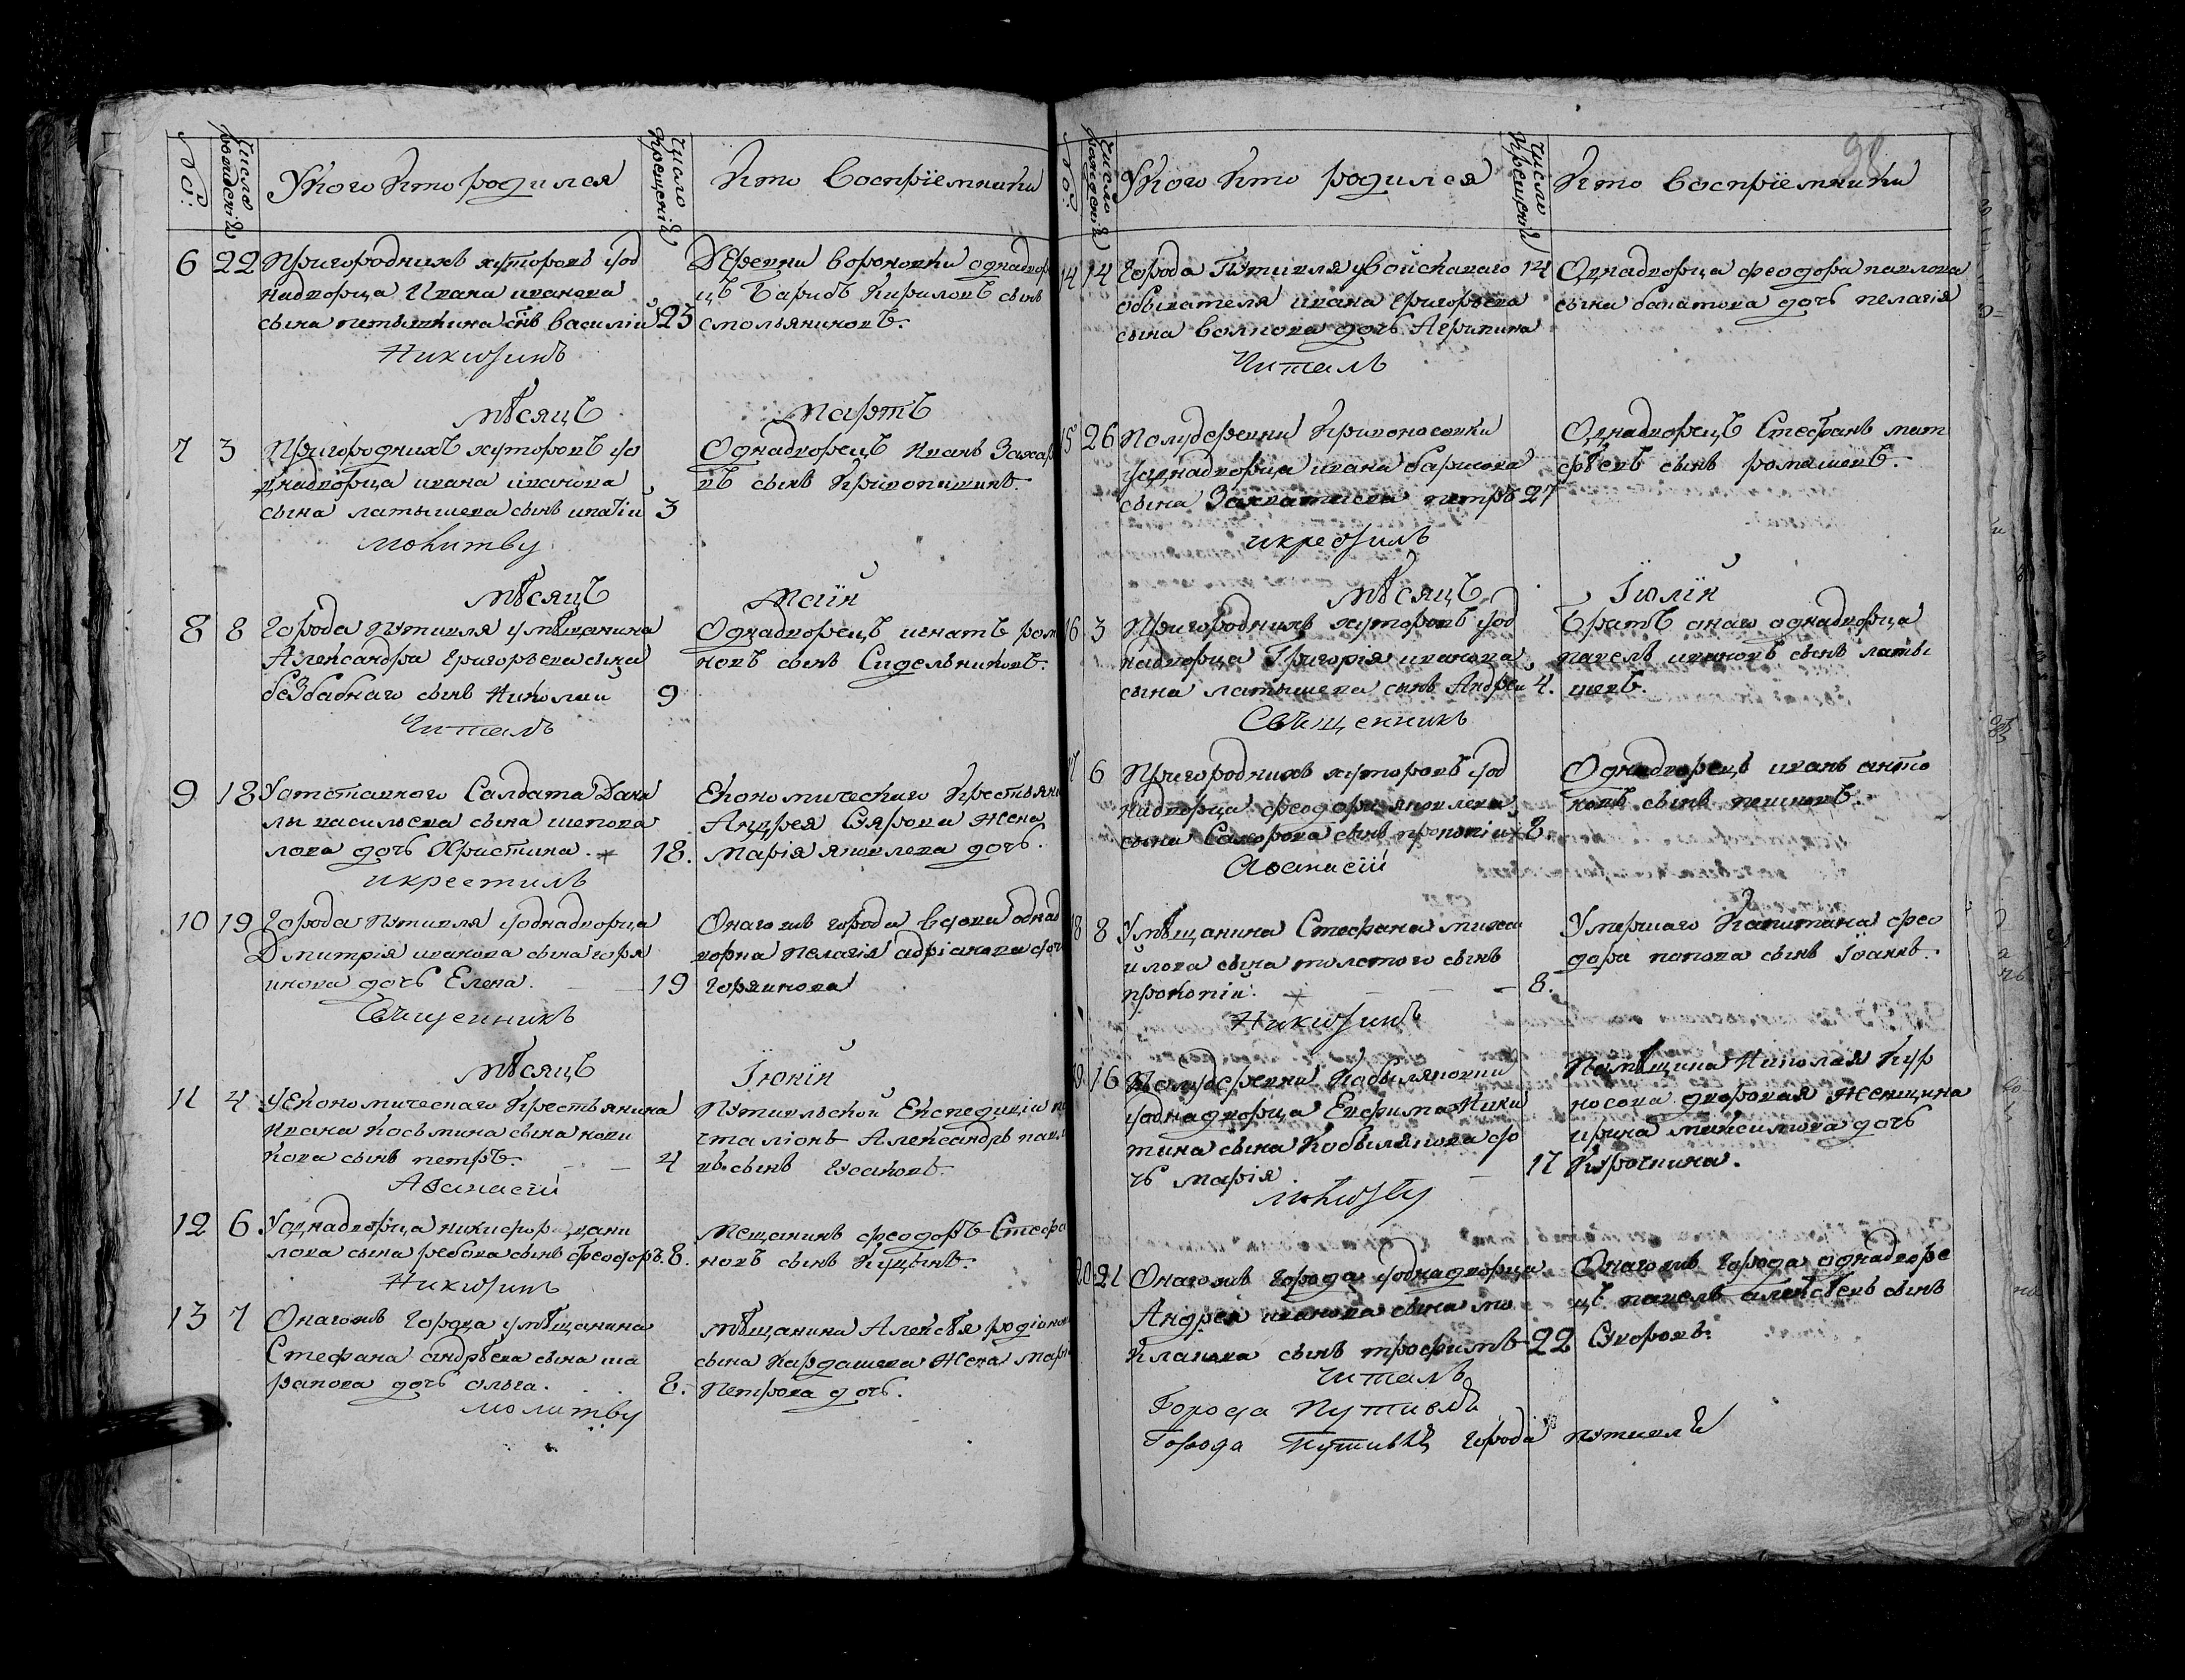 №:
Число рожденій
У кого кто родился
Число крещеній
Кто воспріемники
6 22 Пригородныхъ хуторовъ уод
надворца Ивана иванова
сына петышкина снъ василій 23
Никифимъ
Деревни вороновки однаднор
цъ Барисъ Кириловъ сынъ
смольяниновъ.
мѣсяцъ
Мартъ
7 3 Пригородныхъ хуторовъ уо
днадворца ивана иванова
сына латышева сынъ ипатій 3
молитву
Однадворецъ иванъ Захар
въ сынъ Кривопишинъ.
мѣсяцъ
Маій
8 8 Города путивля умѣщанина
Александра григорьева сына
безбабнаго сынъ Николаи 9
Читалъ
Однадворецъ игнатъ ром
новъ сынъ Сидельниковъ.
9 18 Уотставного Салдата Дани
лы васильева сына шепова
лова дочь Христина. 18.
икрестилъ
Економическаго Крестьяни
Андрея Сярова жена
Марія яковлева дочь.
10 19 Города путивля уоднадворца
Дмитрія иванова сына горя
инова дочь Елена. 19
Священникъ
Онагожъ города вдова однад
ворка пелагія адріанова доч
горяинова
мѣсяцъ
Іюній
11 4 Уекономическаго Крестьянина
ивана Косьмина сына нови
кова сынъ петръ. 4
Афанасій
Путивльской Експедиціи по
чталіонъ Александръ павл
въ сынъ Русановъ.
12 6 Уоднадворца никифора дани
лова сына ребова сынъ феодоръ. 8.
Мещанинъ феодоръ Стефа
новъ сынъ Куцынъ.
13 7 Онагожъ города умѣщанина
Стефана андрѣева сына ша
рапова дочь ольга. 8.
молитву
мѣщанина Алексѣя родіонов
сына Кардашева жена Марі
Петрова дочь.
№:
Число рожденій
У кого кто родился
Число крещеній
Кто воспріемники
14 14 Города Путивля увойскаваго 14
обывателя ивана григорьева
сына волкова дочь Агрипина
Читалъ
Однадворца феодора павлова
сына богатова дочь пелагія
15 26 Полудеревни Кривоносовки
уоднадворца ивана барисова
сына Захватаева петръ 27
икрестилъ
Однадворецъ Стефанъ мат
фѣевъ сынъ ромашевъ.
мѣсяцъ
Іюлій
16 3 Пригородныхъ хуторовъ уод
надворца Григорія иванова
сына латышева сынъ Андреи 4.
Священникъ
Братъ онаго однадворца
павелъ ивановъ сынъ латы
шевъ.
17 6 Пригородныхъ хуторовъ уод
надворца феодора яковлева
сына Сахарова сынъ прокопіи 8.
Афанасій
Однадворецъ иванъ анто
новъ сынъ пешковъ.
18 8 Умѣщанина Стефана михаи
илова сына толстого сынъ
прокопіи. 8.
Умершаго Капитана фео
дора попова сынъ Іоаннъ.
19 16 Полудеревни Кобыляковки
уоднадворца Евфима Ники
тина сына Кобылякова до
чь марія 17
Памѣщика Николая Кур
носова дворовая женщина
ирина максимова дочь
Курочкина.
20 21 Онагожъ города уоднадворца
Андрея иванова сына мо
кланова сынъ трофимъ 22
Читалъ
Онагожъ города однадворе
цъ павелъ алексѣевъ сынъ
Суворовъ.
Города Путивля
Города Путивля города путивля